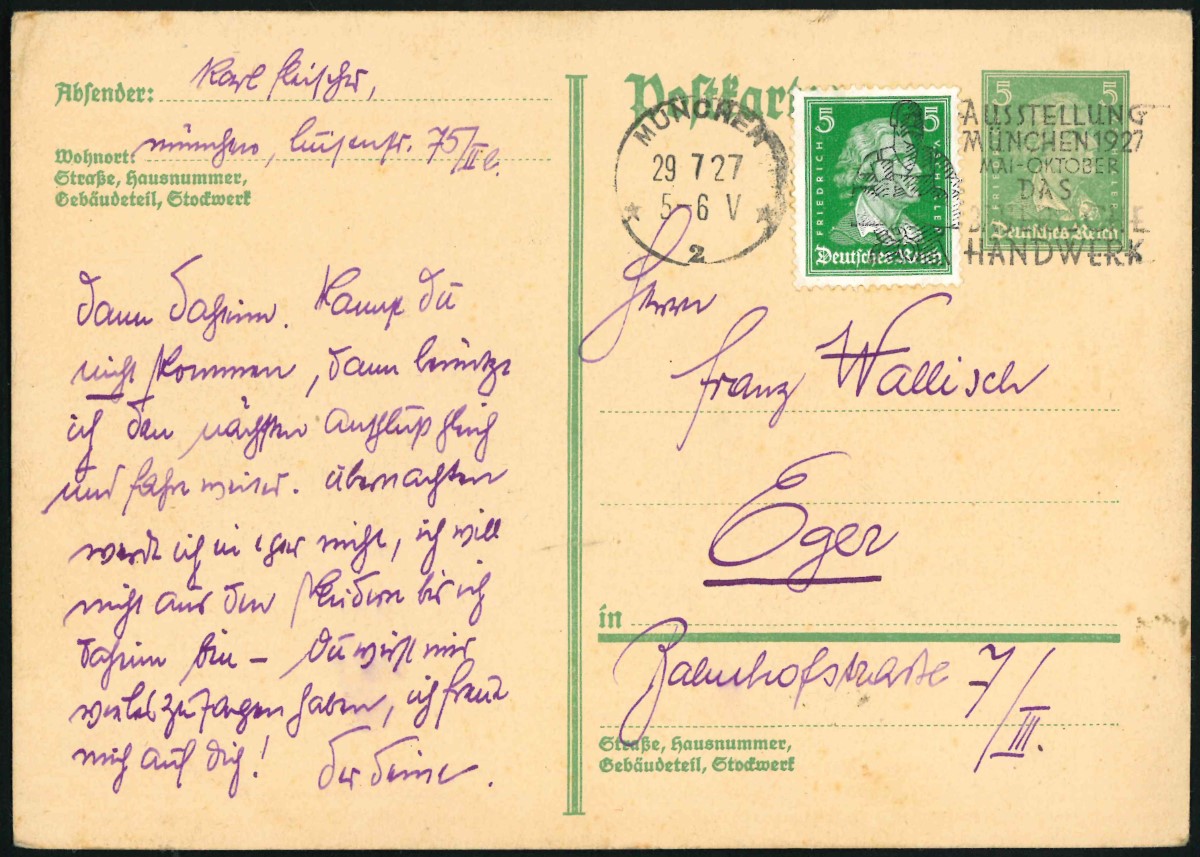 Absender: Karl Fleischer,
Wohnort: München, Luisenstr. 75/II l.
Straße, Hausnummer,
Gebäudeteil, Stockwerk
dann daheim. Kannst Du
nicht kommen, dann benütze
ich den nächsten Anschluß gleich
und fahre weiter. Übernachten
werde ich in Eger nicht, ich will
nicht aus den Kleidern bis ich
daheim bin – Du wirst mir
vieles zu sagen haben, ich freue
mich auf Dich! Der Deine.
Postkarte
MÜNCHEN
29 7 27
5-6 V
2
5 5
FRIEDRICH V. SCHILLER
Deutsches Reich
AUSSTELLUNG
MÜNCHEN 1927
MAI-OKTOBER
DAS
HANDWERK
5 5
Deutsches Reich
Herrn
Franz Wallisch
Eger
in
Bahnhofstrasse 7/III.
Straße, Hausnummer,
Gebäudeteil, Stockwerk